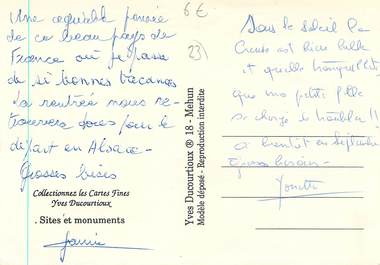 Une exquise pensée
de ce beau pays de
France où je passe
de si bonnes vacances
la rentrée nous re-
trouvera pour le
départ en Alsace.
Grosses bises
Collectionnez les Cartes Fines
Yves Ducourtioux
. Sites et monuments
Yves Ducourtioux ® 18 - Mehun
Modèle déposé - Reproduction interdite
6€
23
Sous le soleil la
Creuse est bien belle
et quelle tranquillité
que ma petite fille
se charge de troubler !!
a bientôt en Septembre
Gros baisers